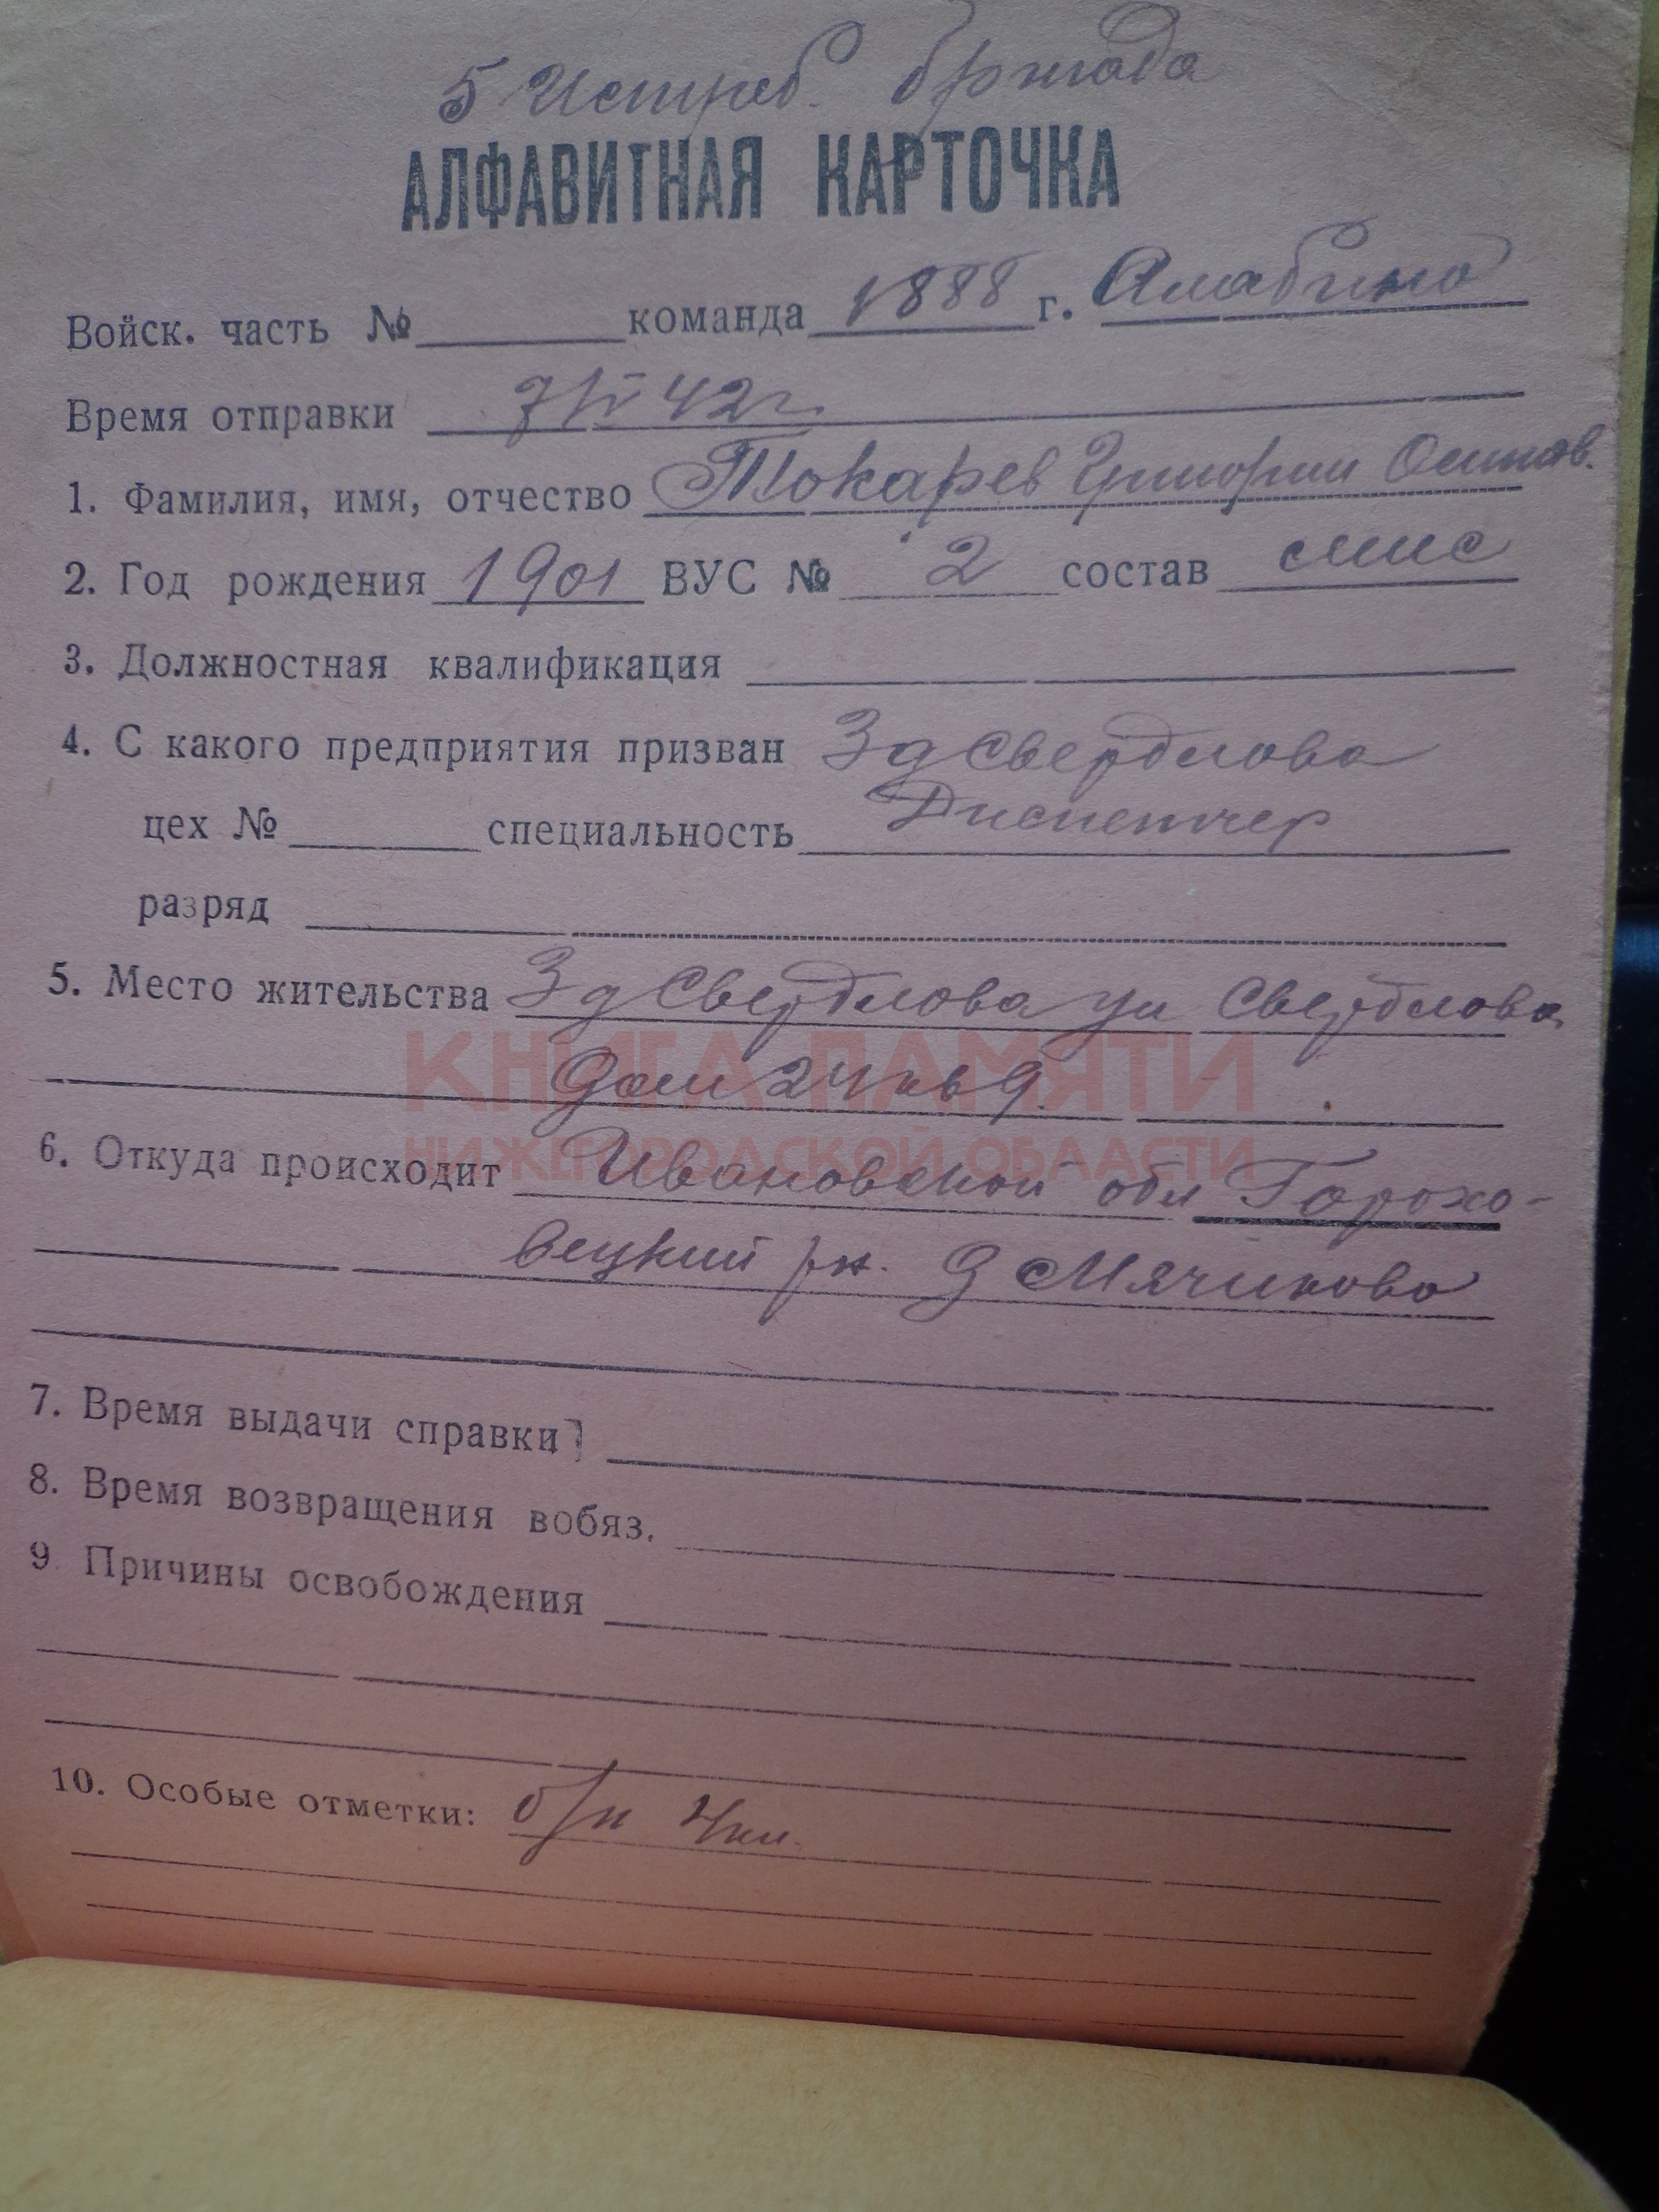 5 Истреб. бригада
АЛФАВИТНАЯ КАРТОЧКА
Войск. часть № команда 1888 г. Алабино
Время отправки 42г.
1. Фамилия, имя, отчество Токарев Григорий Осипов.
2. Год рождения 1901 ВУС № 2 состав
3. Должностная квалификация
4. С какого предприятия призван З д Свердлова
цех № специальность Диспетчер
разряд
5. Место жительства З д Свердлова ул Свердлова
дом 24 кв 9.
КНИГА ПАМЯТИ
НИЖЕГОРОДСКОЙ ОБЛАСТИ
6. Откуда происходит Ивановской обл Горохо-
вецкий рн. д Мячково
7. Время выдачи справки
8. Время возвращения вобяз.
9. Причины освобождения
10. Особые отметки: б/п 4 кл.